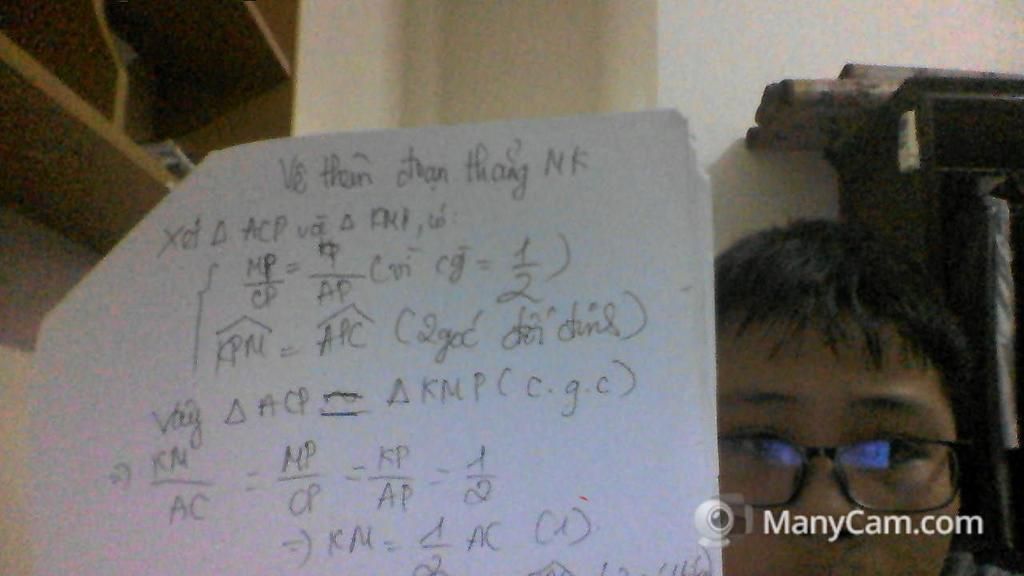 Vẽ thêm đoạn thẳng MK
Xét Δ ACP và Δ KMP, có:
MP/CP = KP/AP (vì cg̀ = 1/2)
KPM = APC (2 góc đối đỉnh)
Vậy Δ ACP = Δ KMP (c.g.c)
=> KM/AC = MP/CP = KP/AP = 1/2
=> KM = 1/2 AC (1)
ManyCam.com